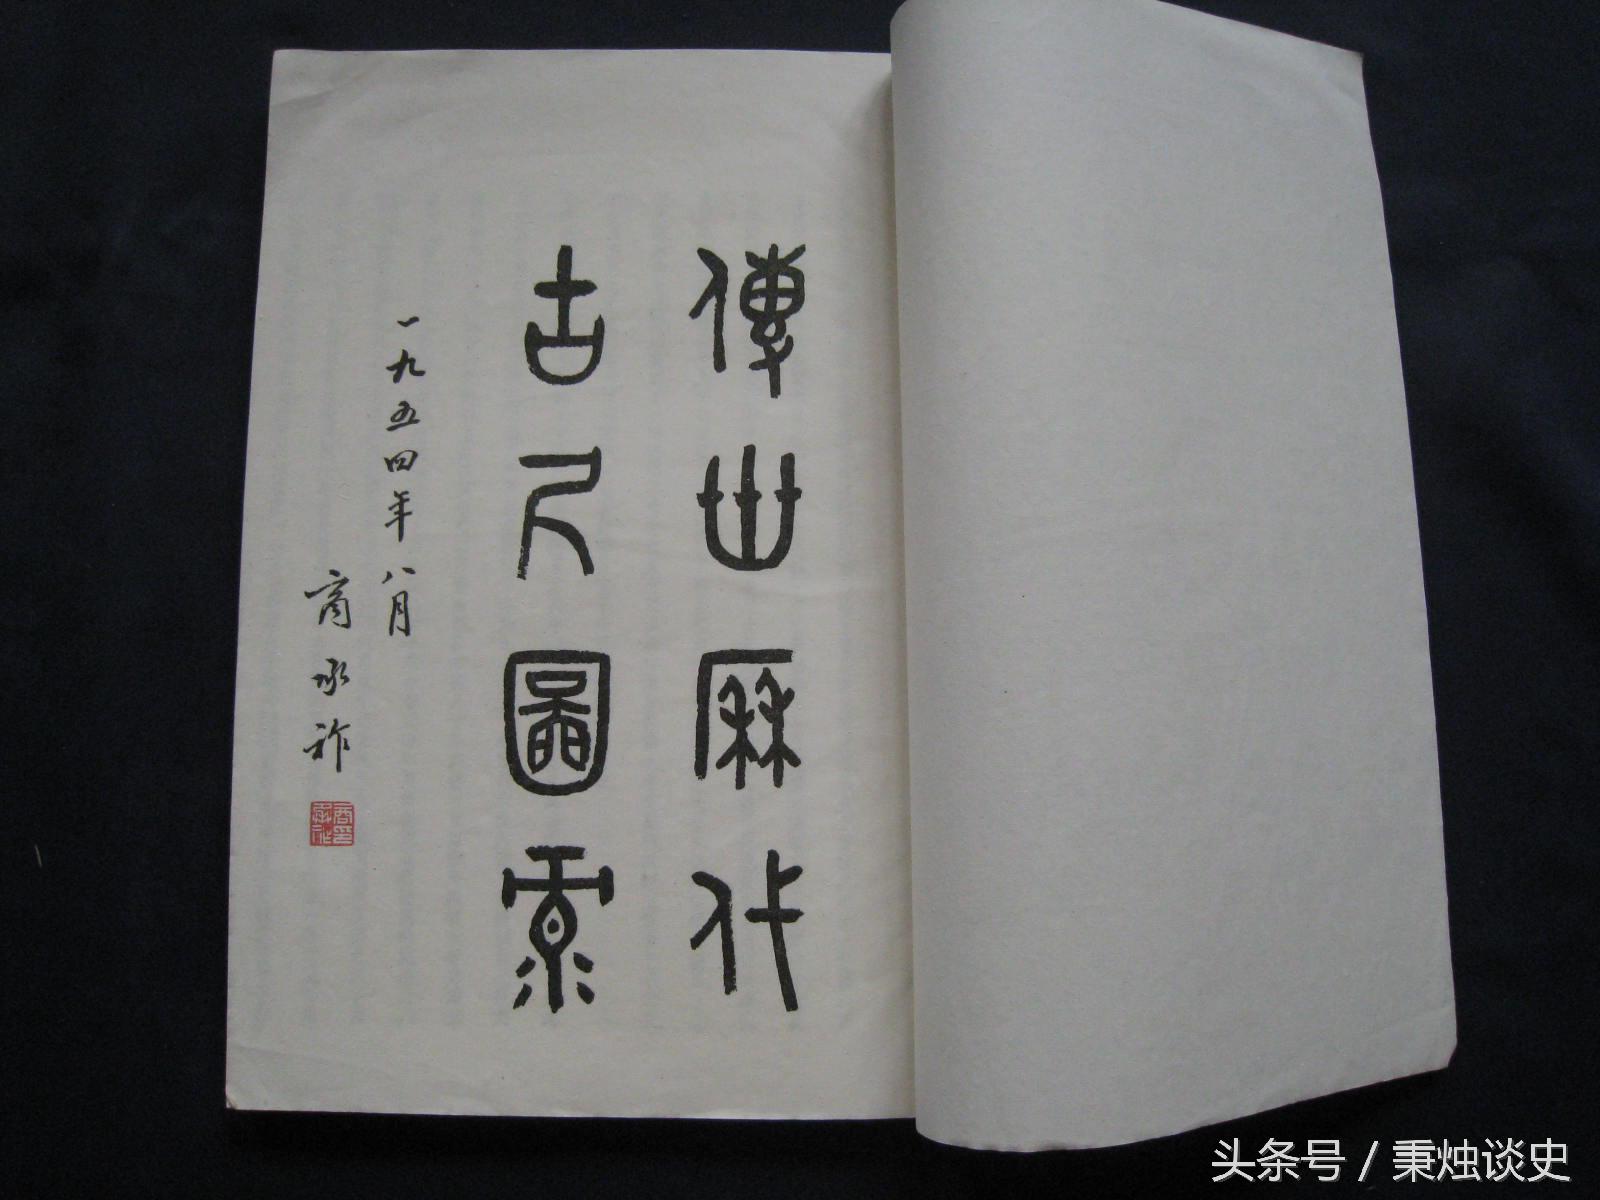 傳世厤代
古人圖索
一九五四年八月
商承祚
商承祚印
头条号 / 秉烛谈史